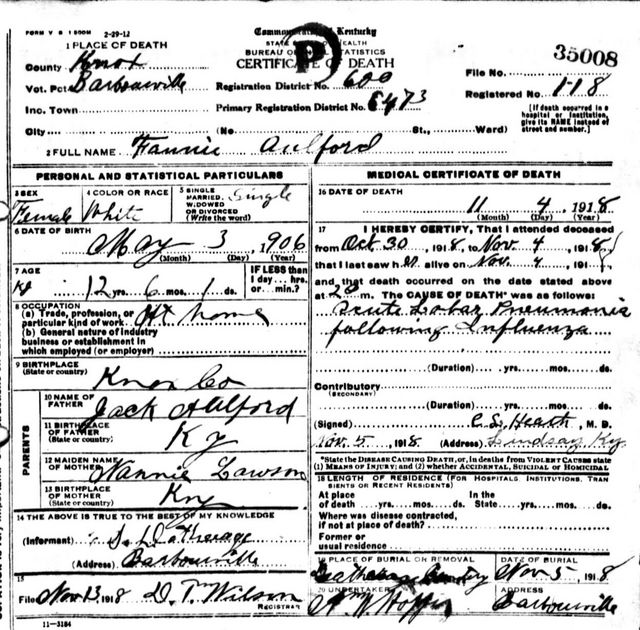 FORM V S 1 500M 2-29-12
Commonwealth of Kentucky
STATE BOARD OF HEALTH
BUREAU OF VITAL STATISTICS
CERTIFICATE OF DEATH
P
35008
1 PLACE OF DEATH
County Knox
Vot. Pct Barbourville
Inc. Town
City (No St., Ward)
Registration District No. 600
Primary Registration District No. 6473
File No.
Registered No. 118
[If death occurred in a hospital or institution, give its NAME instead of street and number.]
2 FULL NAME Fannie Aulford
PERSONAL AND STATISTICAL PARTICULARS
3 SEX Female
4 COLOR OR RACE White
5 SINGLE MARRIED, WIDOWED OR DIVORCED (Write the word) Single
6 DATE OF BIRTH May 3 1906
(Month) (Day) (Year)
7 AGE
12 yrs. 6 mos. 1 ds.
IF LESS than 1 day... hrs. or min.?
8 OCCUPATION
(a) Trade, profession, or particular kind of work At home
(b) General nature of industry business or establishment in which employed (or employer)
9 BIRTHPLACE (State or country) Knox Co
PARENTS
10 NAME OF FATHER Jack Aulford
11 BIRTHPLACE OF FATHER (State or country) Ky
12 MAIDEN NAME OF MOTHER Nannie Lawson
13 BIRTHPLACE OF MOTHER (State or country) Kny
14 THE ABOVE IS TRUE TO THE BEST OF MY KNOWLEDGE
(Informant)
(Address) Barbourville
15
File Nov 13, 1918 D. T. Wilson
REGISTRAR
11-3184
MEDICAL CERTIFICATE OF DEATH
16 DATE OF DEATH
11 4, 1918
(Month) (Day) (Year)
17 I HEREBY CERTIFY, That I attended deceased
from Oct 30, 1918, to Nov. 4, 1918,
that I last saw her alive on Nov. 4, 191
and that death occurred on the date stated above
at m. The CAUSE OF DEATH* was as follows:
Acute Lobar Pneumonia
following Influenza
(Duration) yrs. mos. ds.
Contributory
(SECONDARY)
(Duration) yrs. mos. ds.
(Signed) C. S. Heath, M. D.
Nov. 5, 1918 (Address) Lindsay Ky.
*State the DISEASE CAUSING DEATH, or, in deaths from VIOLENT CAUSES state
(1) MEANS OF INJURY; and (2) whether ACCIDENTAL, SUICIDAL OR HOMICIDAL
18 LENGTH OF RESIDENCE (FOR HOSPITALS, INSTITUTIONS, TRANSIENTS OR RECENT RESIDENTS)
At place of death yrs. mos. ds.
In the State yrs. mos. ds.
Where was disease contracted, if not at place of death?
Former or usual residence
19 PLACE OF BURIAL OR REMOVAL
DATE OF BURIAL Nov 5, 1918
20 UNDERTAKER
ADDRESS Barbourville